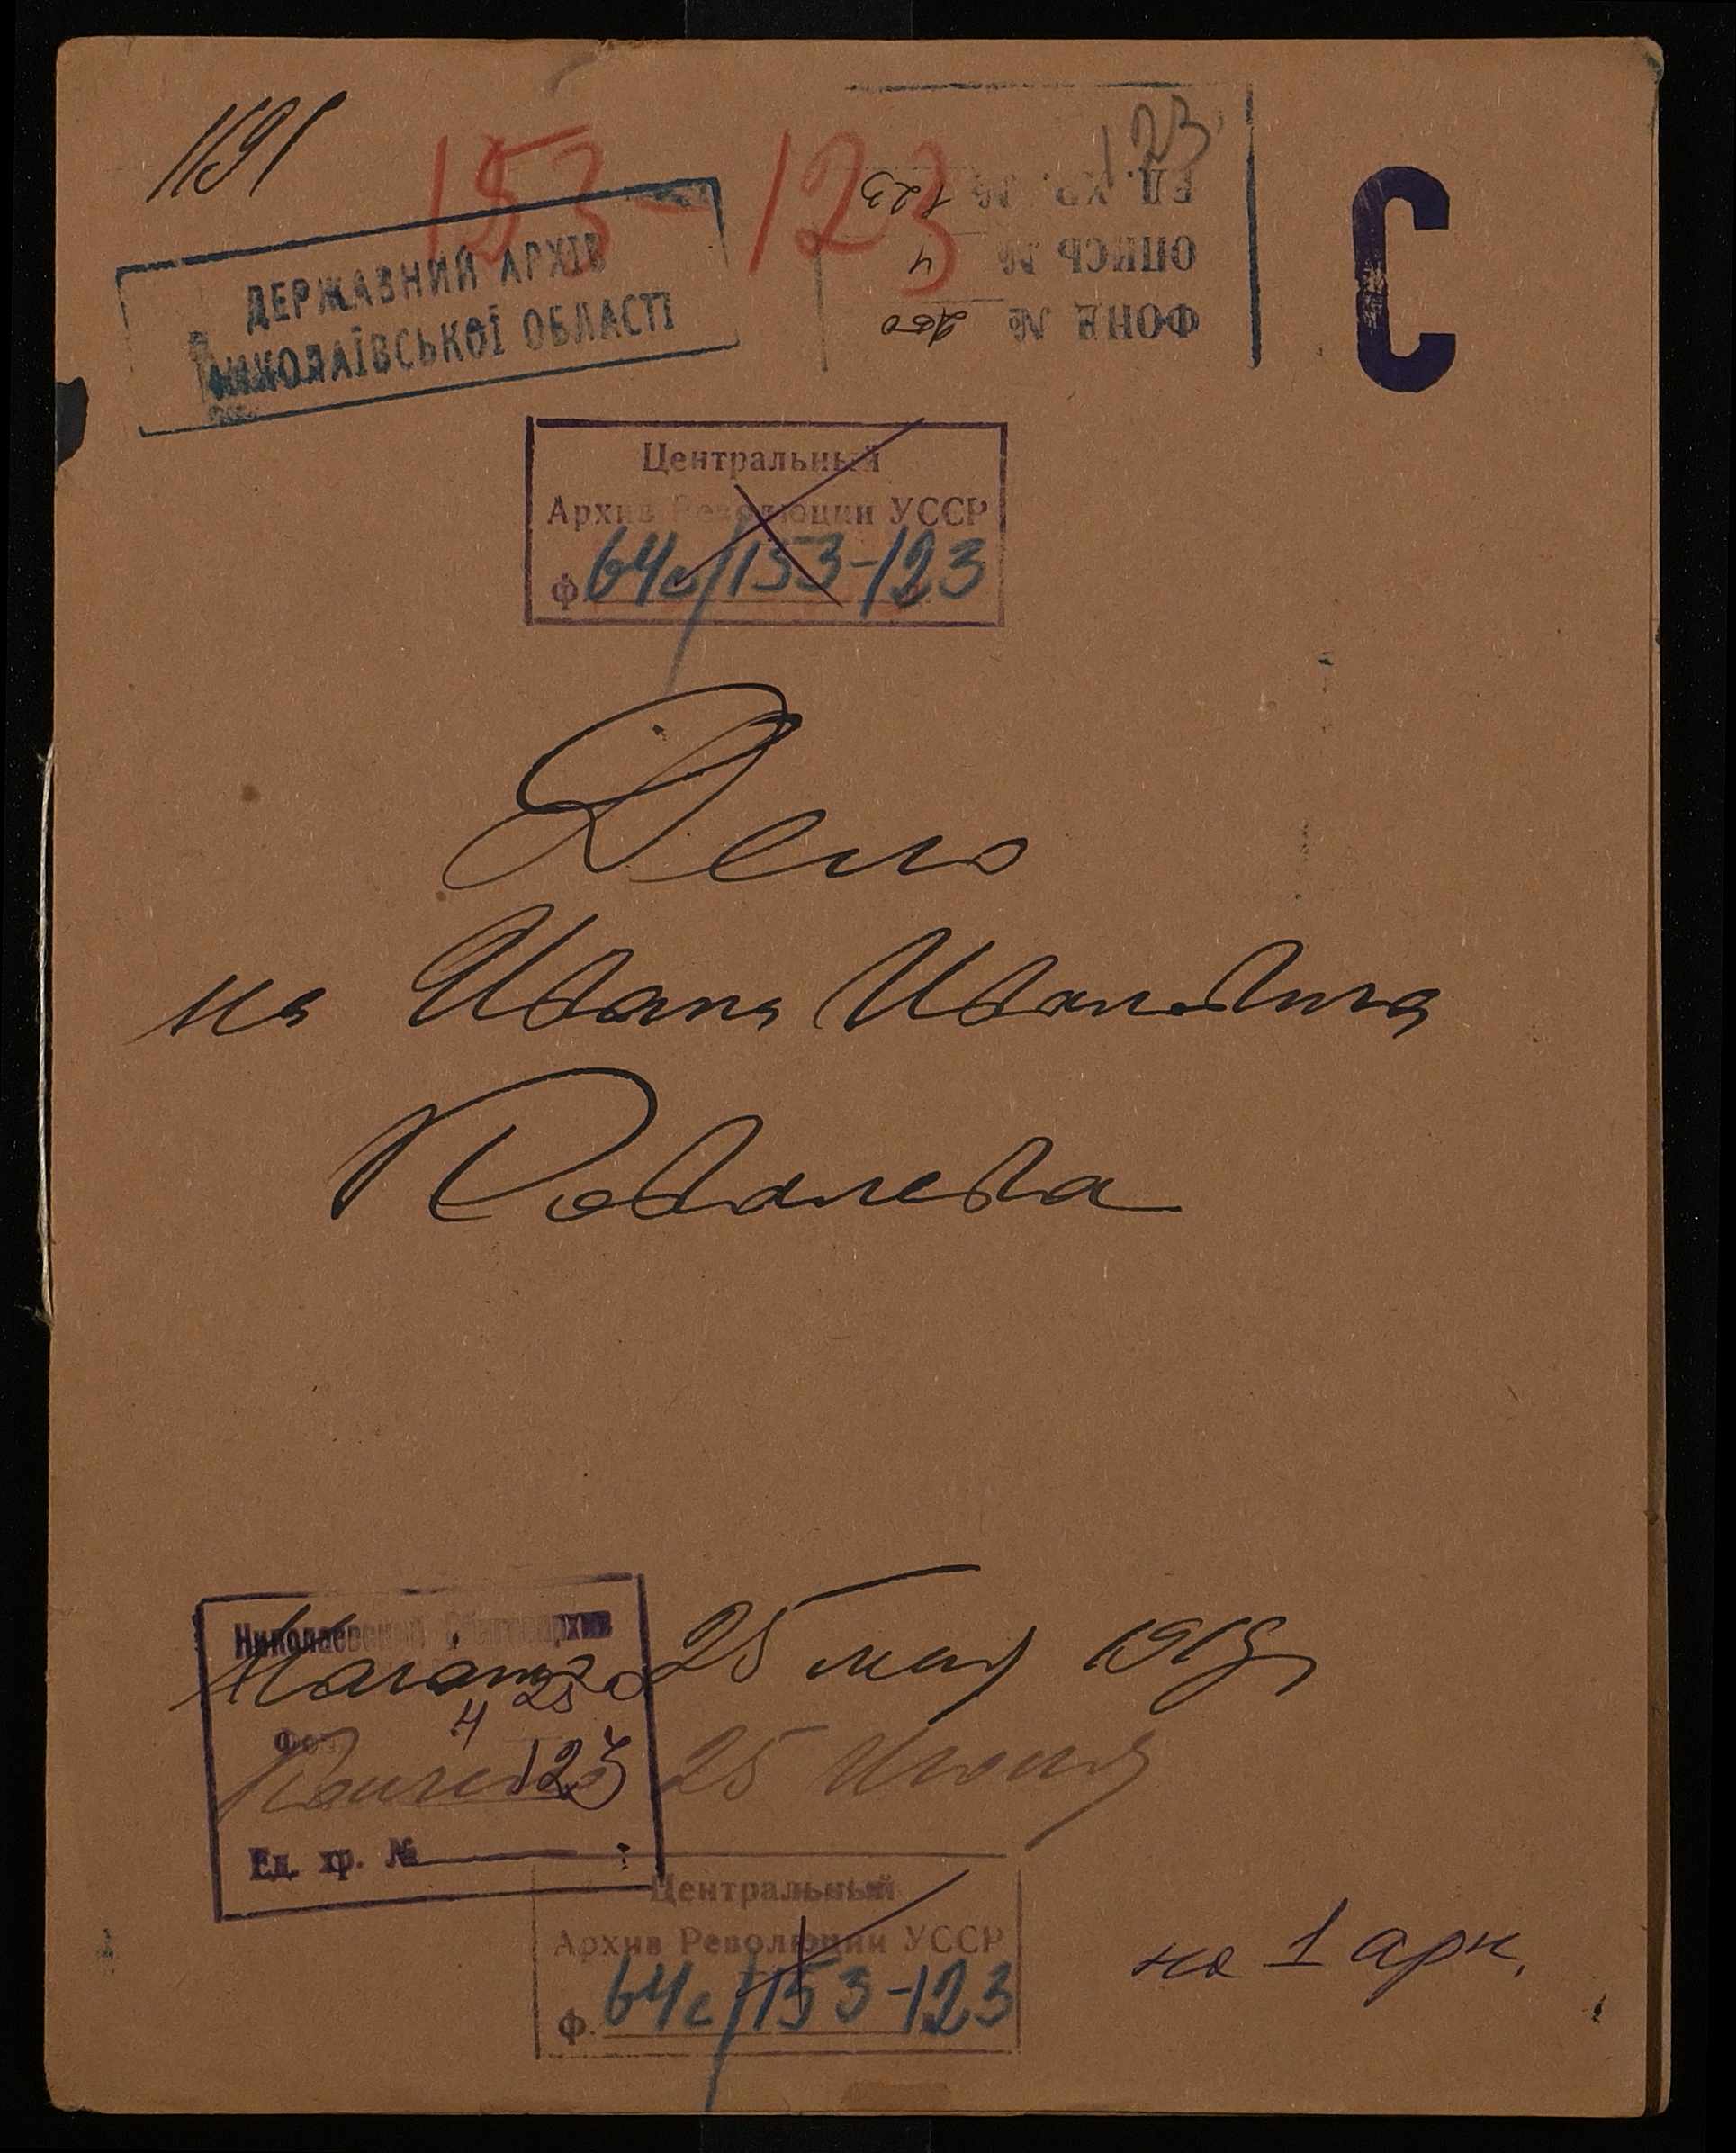 1191
153-123
123
ДЕРЖАВНИЙ АРХІВ
МИКОЛАЇВСЬКОЇ ОБЛАСТІ
ФОНД № 250
ОПИСЬ № 4
ЕД. ХР. № 123
С
Центральный
Архив Революции УССР
Ф. 64с/153-123
Дело
на Ивана Ивановича
Ковалева
Николаевский Облгосархив
Начато 25 мая 1919 г.
250
4
Фонд
123
Кончено 25 Июня
Ед. хр. №
Центральный
Архив Революции УССР
ф. 64с/153-123
на 1 арк.